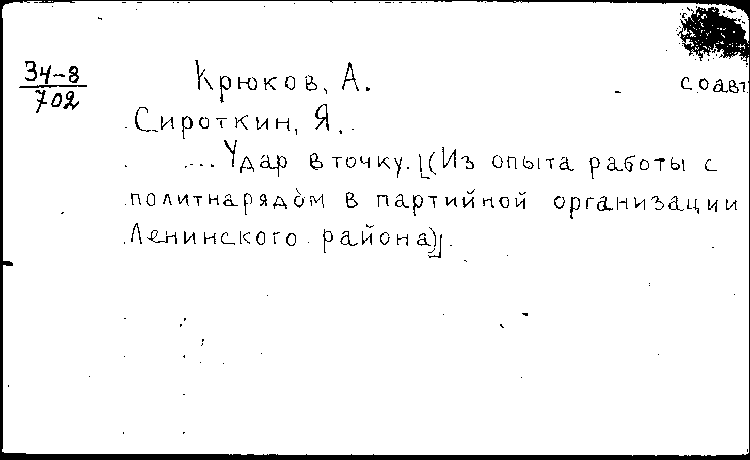 34-8
702
Крюков, А.
соавт
Сироткин, Я.
... Удар в точку. [(Из опыта работы с
политнарядом в партийной организации
Ленинского района)].